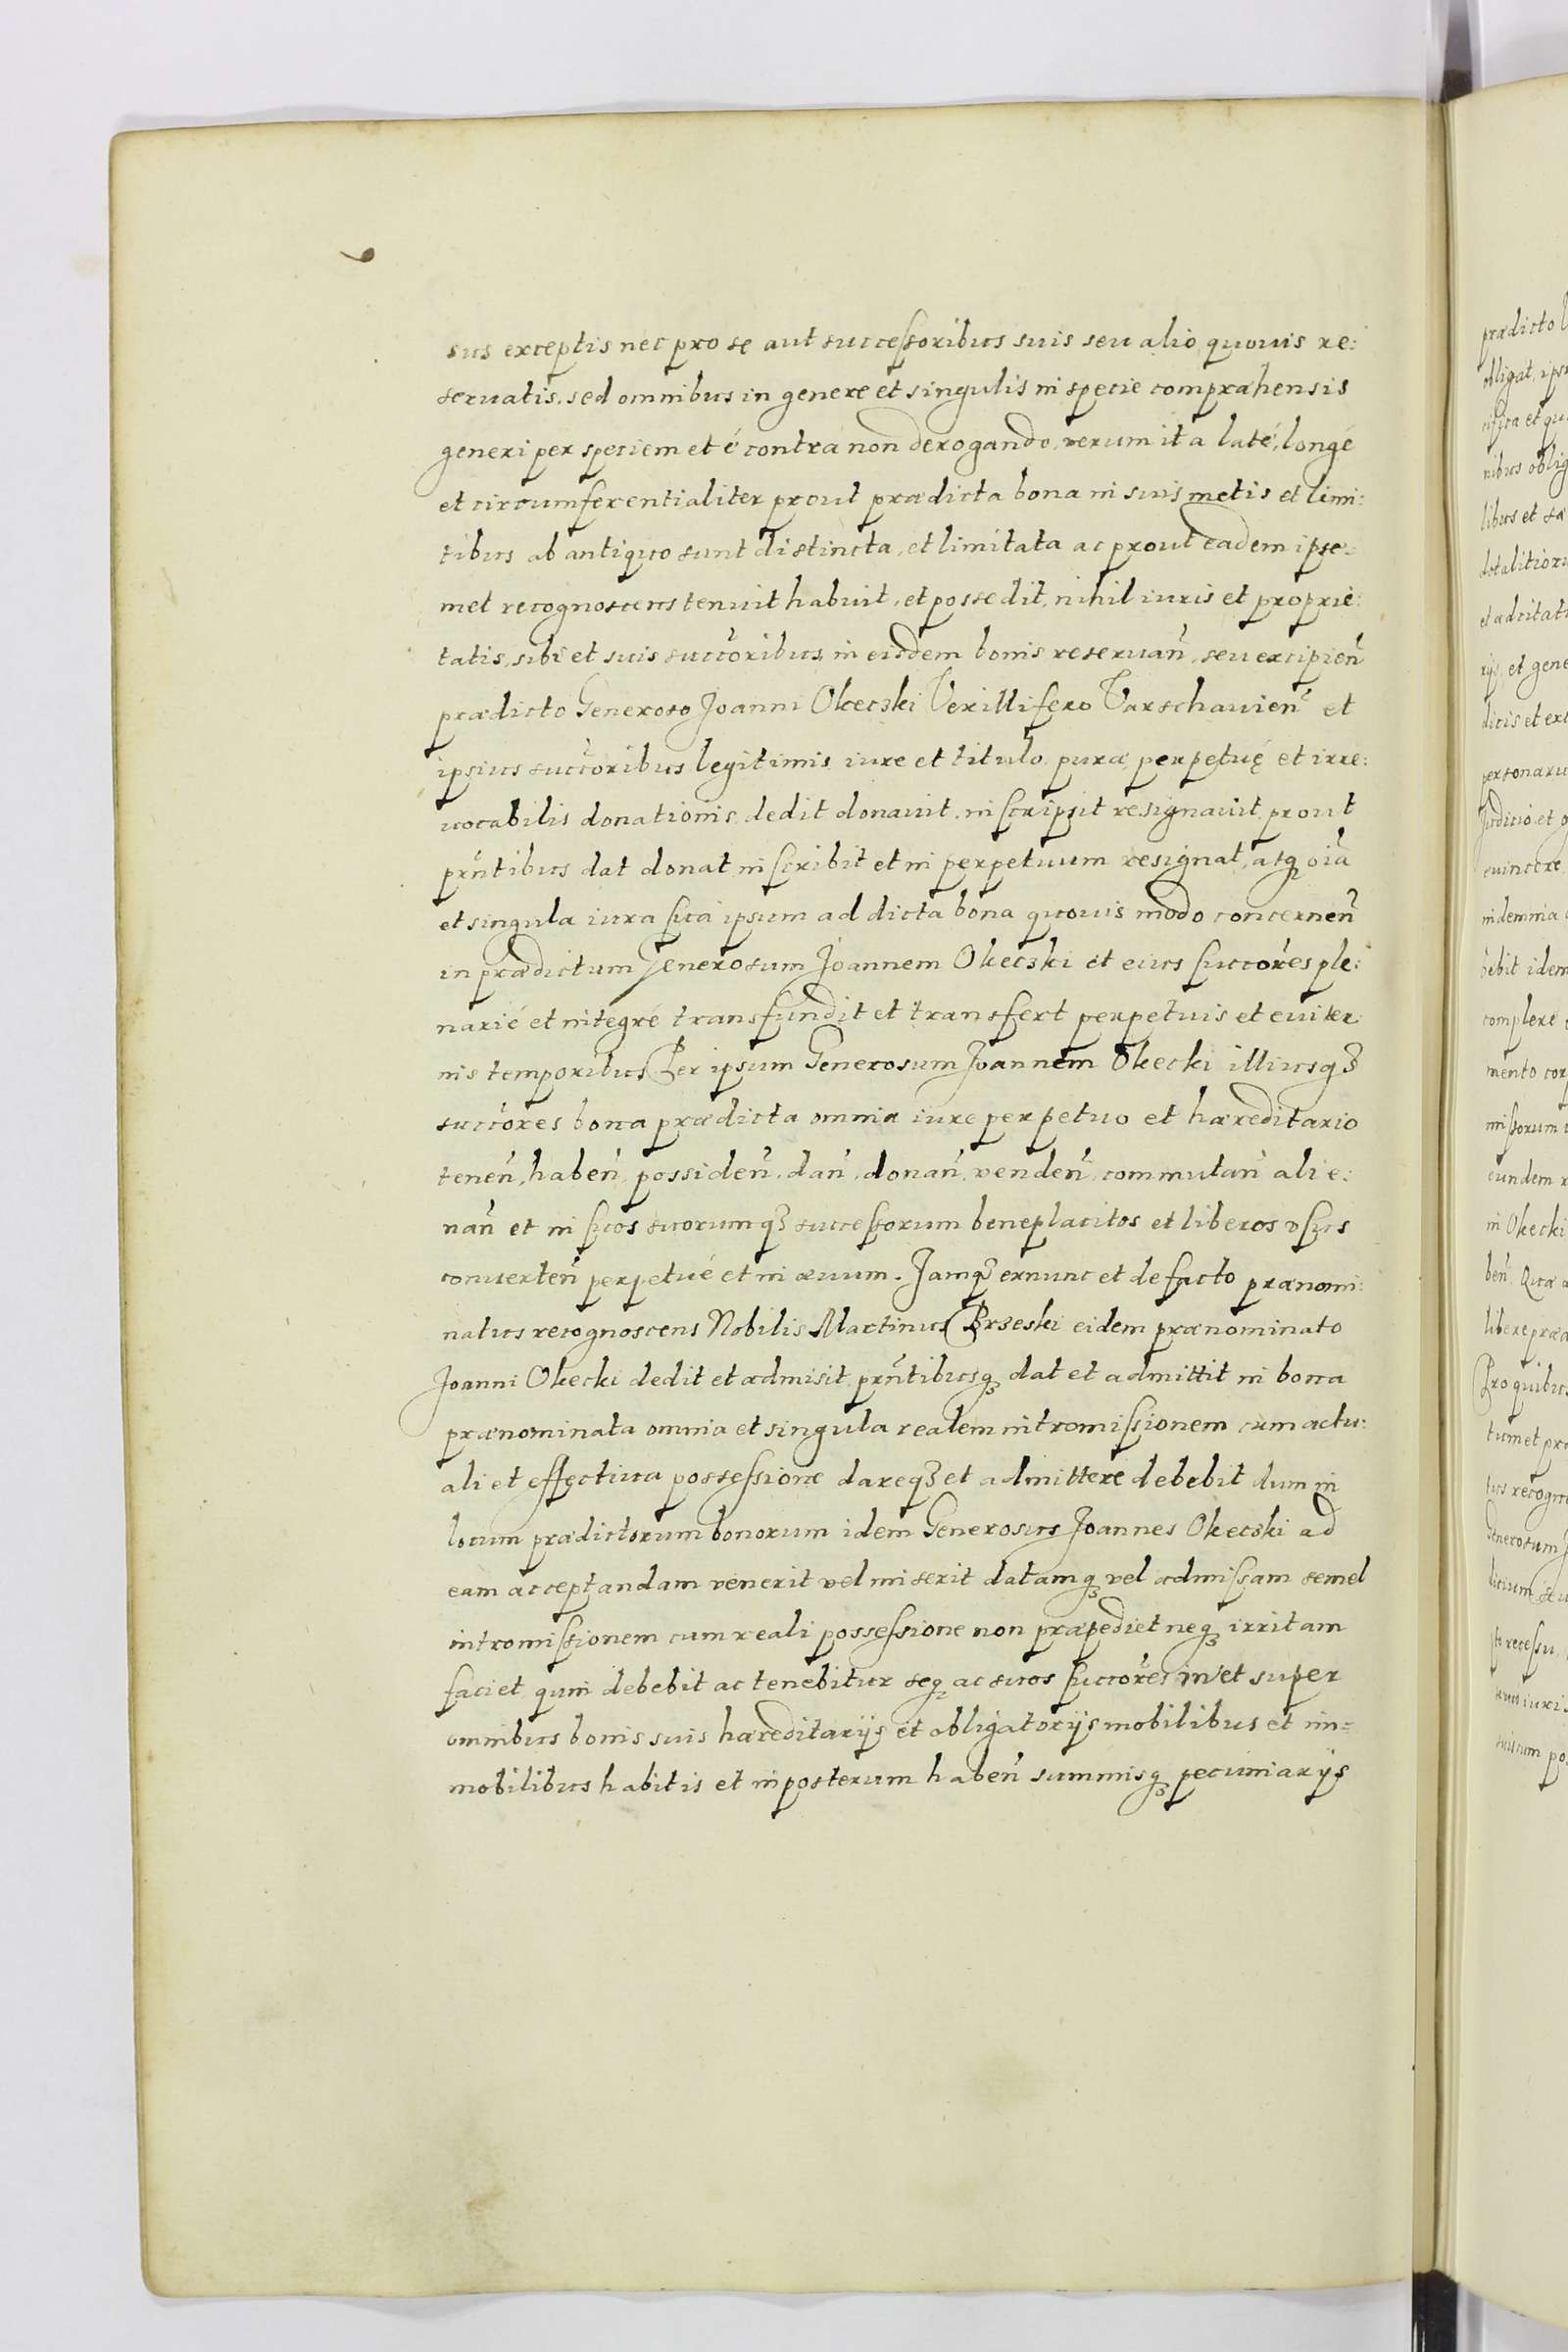 sus exceptis nec pro se aut successoribus suis seu alio quouis re:
seruatis. sed omnibus in genere et singulis in specie compræhensis
generi per speciem et é contra non derogando, verum ita laté, longé
et circumferentialiter prout prædicta bona in suis metis et limi:
tibus ab antiquo sunt distincta, et limitata ac prout eadem ipse:
met recognoscens tenuit habuit, et possedit, nihil iuris et proprie:
tatis, sibi et suis succōribus in eisdem bonis reseruan̄, seu excipien̄
prædicto Generoso Joanni Okecski Vexillifero Varschauien̄ et
ipsius succōribus legitimis iure et titulo puræ perpetuę et irre:
uocabilis donationis dedit donauit, inscripsit resignauit prout
prn̄tibus dat donat inscribit et in perpetuum resignat, atq oīa
et singula iura sua ipsum ad dicta bona quouis modo concernen̄
in prædictum Generosum Joannem Okecski et eius succōres ple:
narié et integré transfundit et transfert perpetuis et euiter
nis temporibus Per ipsum Generosum Joannem Okecki illiusq3
succōres bona prædicta omnia iure perpetuo et hæreditario
tenen̄, haben̄ possiden̄, dan̄, donan̄, venden̄, commutan̄ alie:
nan̄ et in suos suorumq3 successorum beneplacitos et liberos vsus
conuerten̄ perpetué et in æuum. Jamq3 exnunc et de facto prænomi:
natus recognoscens Nobilis Martinus Brseski eidem prænominato
Joanni Okecki dedit et admisit prn̄tibusq3 dat et admittit in bona
prænominata omnia et singula realem intromissionem cum actu:
ali et effectiua possessione dareq3 et admittere debebit dum in
locum prædictorum bonorum idem Generosus Joannes Okecski ad
eam acceptandam venerit vel miserit datamq3 vel admissam semel
intromissionem cum reali possessione non præpediet neq3 irritam
faciet quin debebit ac tenebitur seq ac suos succōres in et super
omnibus bonis suis hæreditarijs et obligatorijs mobilibus et im=
mobilibus habitis et inposterum haben̄ summisq3 pecuniarijs
prædicto
obligat, ips
nibus oblig
libus et
dotalitioru
et aduitati
rijs, et gene
personaru
Juditio et
euincere
indemnia
bebit idem
complere
mento cor
missorum
eundem
in Okecki
ben̄. Quæ
libere præ
Pro quibus
tum et pr
tus recogno
Generosum
recessu,